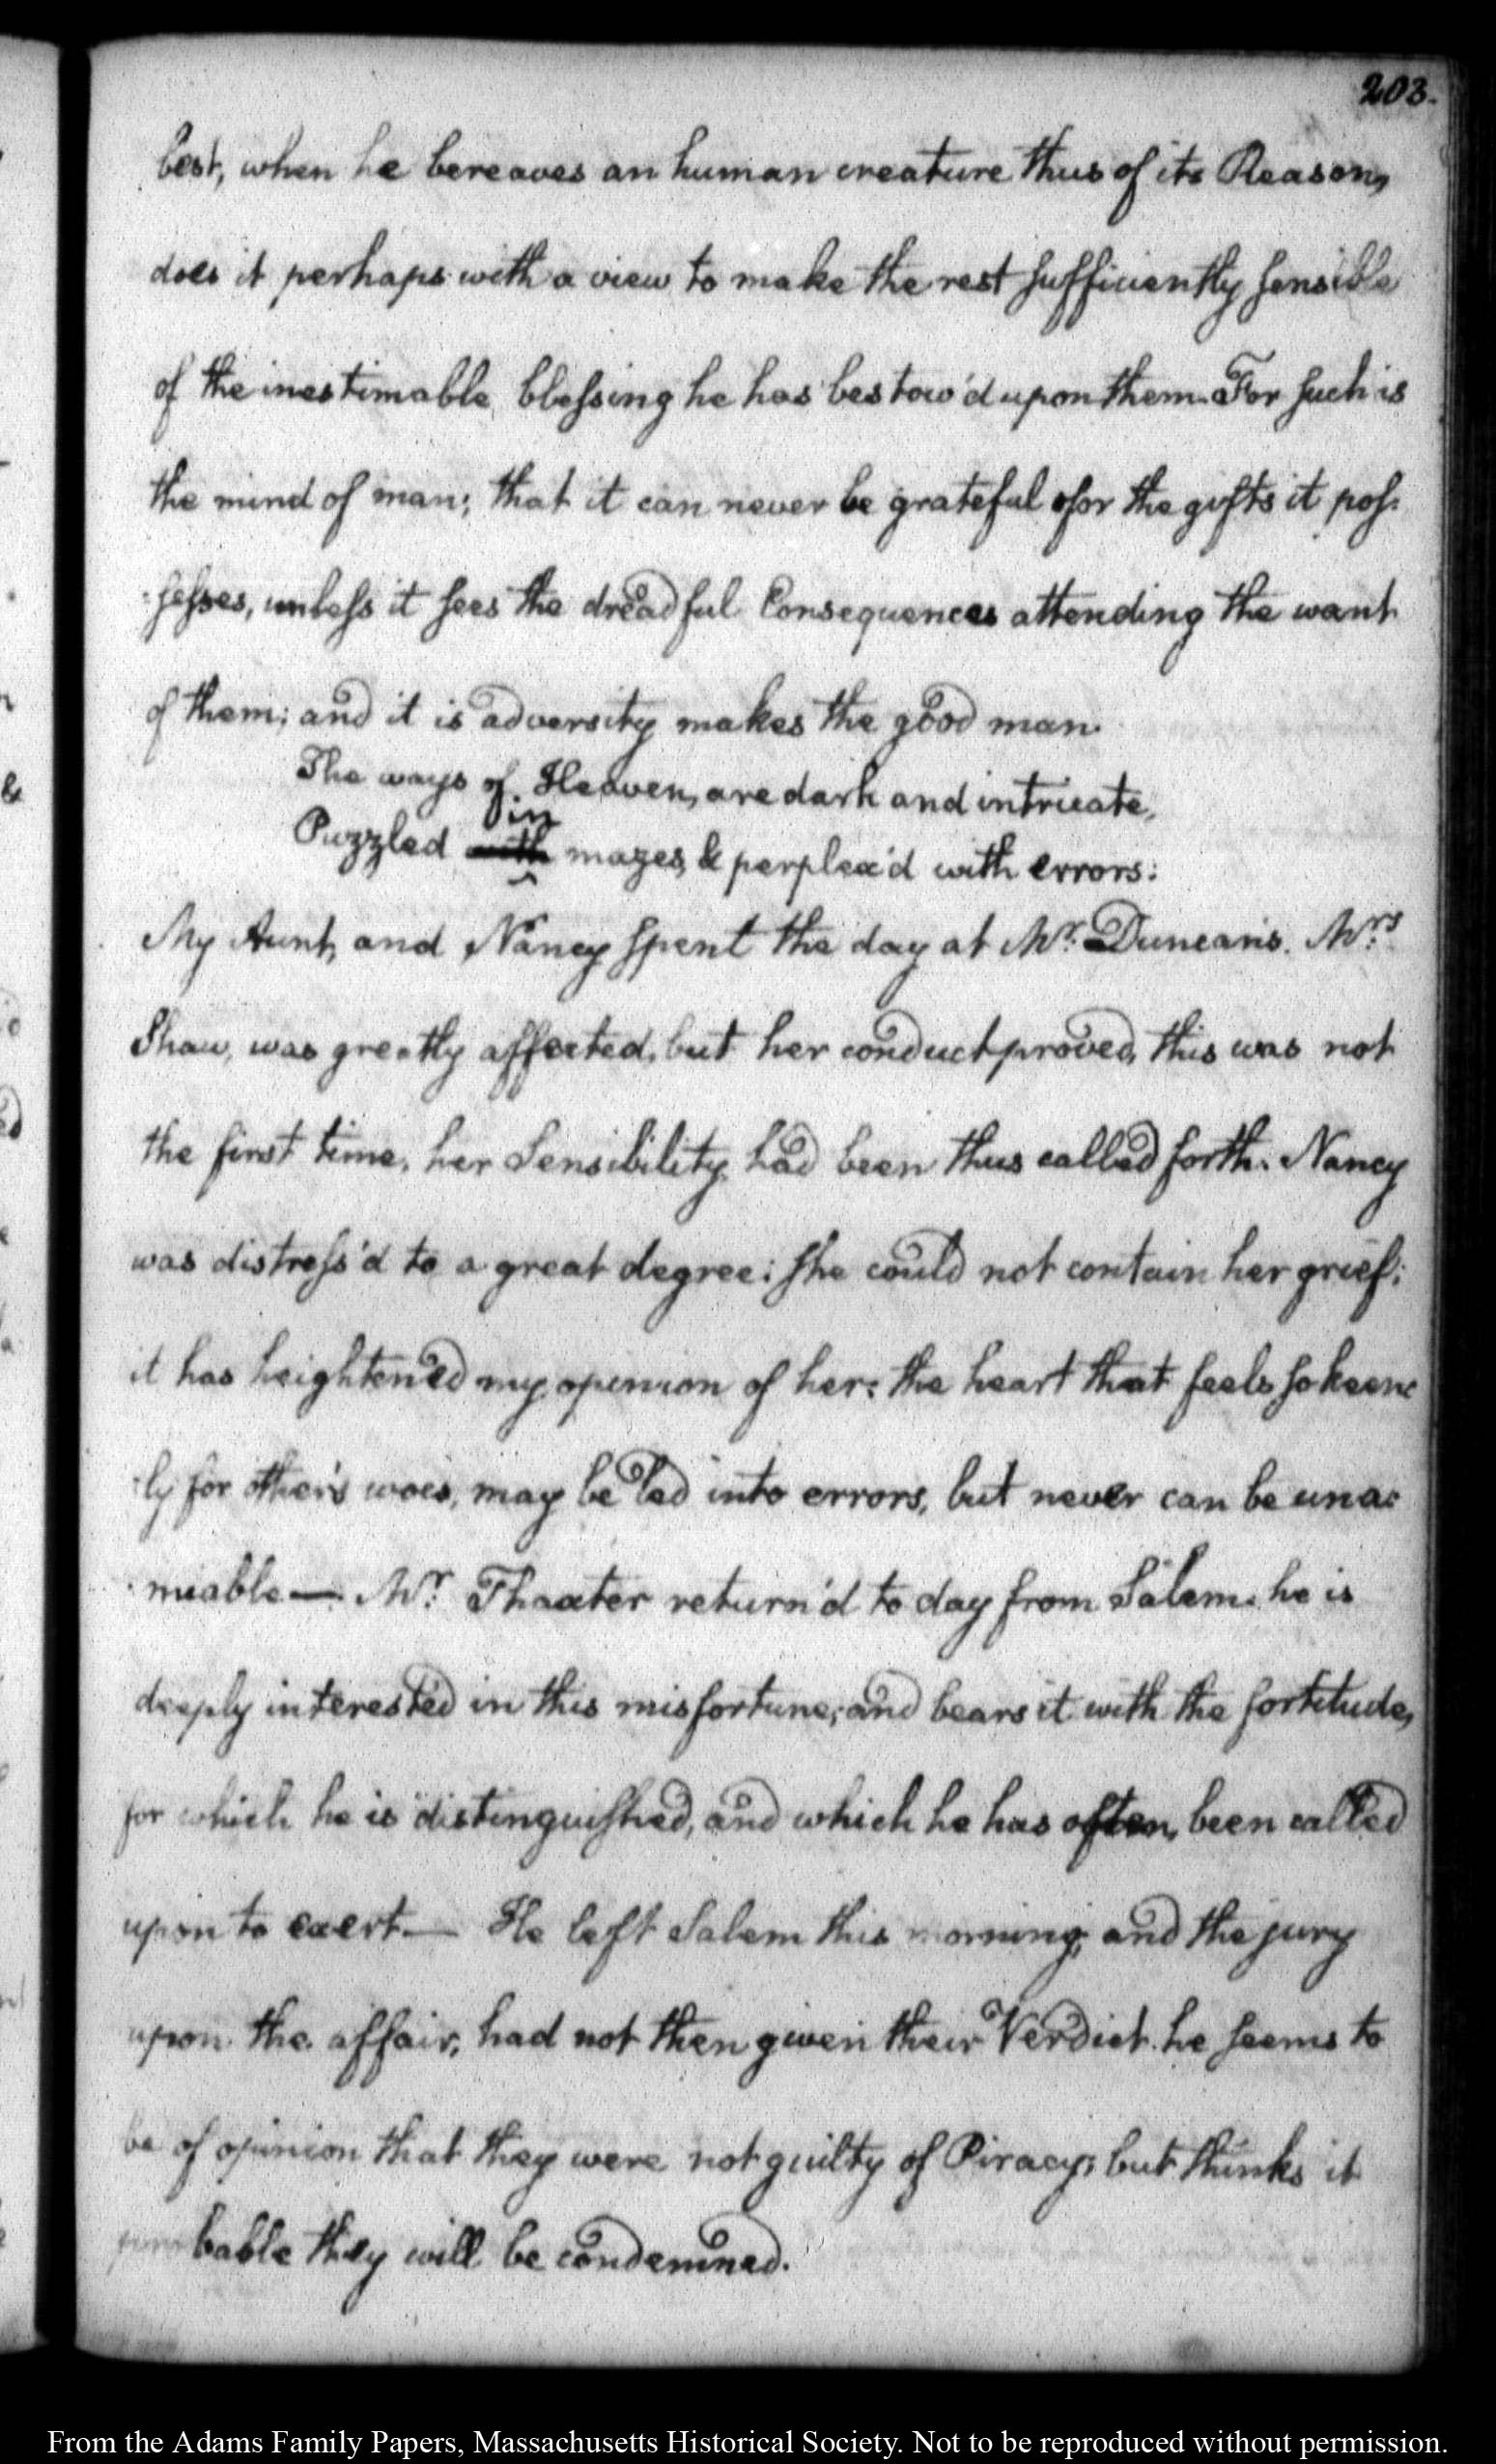 203.
best, when he bereaves an human creature thus of its Reason,
does it perhaps with a view to make the rest sufficiently sensible
of the inestimable blessing he has bestow'd upon them. For such is
the mind of man; that it can never be grateful for the gifts it pos-
-sesses, unless it sees the dreadful Consequences attending the want
of them; and it is adversity makes the good man.
The ways of Heaven, are dark and intricate,
in
Puzzled with mazes, & perplex'd with errors:
My Aunt, and Nancy spent the day at Mr. Duncan's. Mrs.
Shaw, was greatly affected, but her conduct proved, this was not
the first time, her Sensibility had been thus called forth. Nancy
was distress'd to a great degree: she could not contain her grief:
it has heightened my opinion of her: the heart that feels so keen-
-ly for other's woes, may be led into errors, but never can be una-
-miable — Mr. Thaxter return'd to day from Salem. he is
deeply interested in this misfortune, and bears it with the fortitude,
for which he is distinguished, and which he has often, been called
upon to exert — He left Salem this morning, and the jury
upon the affair, had not then given their Verdict. he seems to
be of opinion that they were not guilty of Piracy; but thinks it
probable they will be condemned.
From the Adams Family Papers, Massachusetts Historical Society. Not to be reproduced without permission.